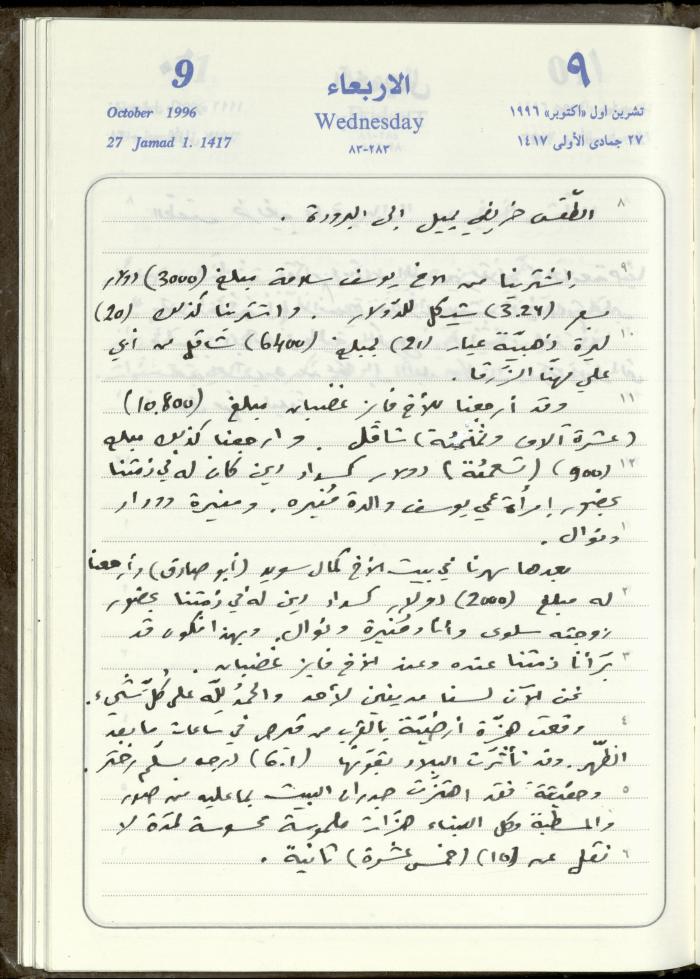 9
٩
الاربعاء
October 1996
تشرين اول «اكتوبر» ١٩٩٦
Wednesday
27 Jamad 1. 1417
٢٧ جمادى الأولى ١٤١٧
٢٨٣-٨٣
٨ الطّقس خريفي يميل الى البرودة .
٩
إشترينا من الاخ يوسف سلامة مبلغ (3000) دولار
بسعر (3,26) شيكل للدّولار . واشترينا كذلك (20)
١٠ ليرة ذهبيّة عيار (21) بمبلغ (6400) شاقل من أخي
علي مهنّا الزّرقا .
١١ وقد أرجعنا للأخ فايز غضبان مبلغ (10,800)
(عشرة آلاف وثمنمئة) شاقل . وارجعنا كذلك مبلغ
١٢ (900) (تسعمئة) دولار كسداد دين كان له في ذمّتنا
بحضور إمرأة عمي يوسف والدة مُنيره . ومنيرة ودولار
١ ونوال .
بعدها سهرنا في بيت الأخ كمال سويد (أبو صادق) وأرجعنا
٢ له مبلغ (2000) دولار كسداد دين له في ذمّتنا بحضور
زوجته سلوى وأنا ومُنيرة ونوال . وبهذا نكون قد
٣ برّأنا ذمّتنا عنده وعند الأخ فايز غضبان .
نحن الآن لسنا مدينين لأحد والحمدُ للّه على كلّ شيء .
٤ وقعت هزّة أرضيّة بالقرب من قبرص في ساعات ما بعد
الظّهر . وقد تأثّرت البلاد بقوّتها (6,1) درجه بسلّم رختر .
٥ وحقيقةً فقد اهتزّت جدران البيت بما عليه من صور
والمسطبة وكل البناء هزّات ملموسة محسوسة لمدّة لا
٦ تقل عن (15) (خمس عشرة) ثانية .